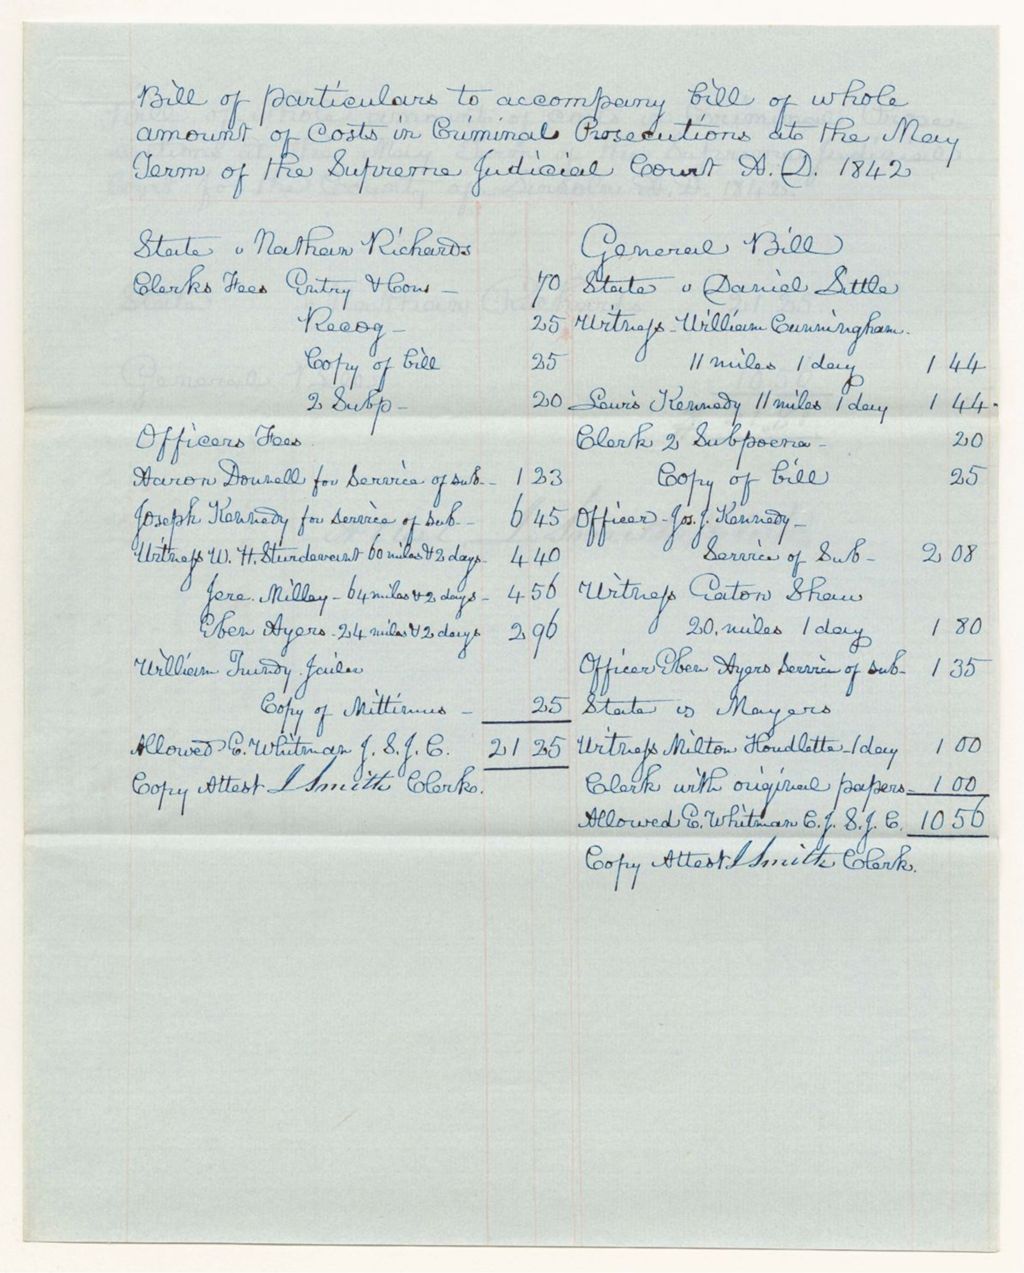 Bill of particulars to accompany bill of whole
amount of Costs in Criminal Prosecutions at the May
Term of the Supreme Judicial Court A. D. 1842
State v Nathan Richards
Clerks Fees Entry & Cons - 70
Recog - 25
Copy of bill 25
2 Subp - 20
Officers Fees.
Aaron Dowsell for Service of sub - 1 23
Joseph Kennedy for service of sub - 6 45
Witness W. H. Sturdevant 60 miles & 2 days - 4 40
Jere. Milley - 64 miles & 2 days - 4 56
Eben Ayers - 24 miles & 2 days 2 96
William Trundy Jailer
Copy of Mittimus - 25
Allowed E. Whitman J. S. J. C. 21 25
Copy Attest J Smith Clerk.
General Bill
State v Daniel Little
Witness - William Cunningham.
11 miles 1 day 1 44
Lewis Kennedy 11 miles 1 day 1 44
Clerk 2 Subpoena - 20
Copy of bill 25
Officer - Jos. J. Kennedy -
Service of Sub - 2 08
Witness Eaton Shaw
20. miles 1 day 1 80
Officer Eben Ayers Service of sub - 1 35
State vs Mayers
Witness Milton Houdlette - 1 day 1 00
Clerk with original papers - 1 00
Allowed E. Whitman C. J. S. J. C. 10 56
Copy Attest J Smith Clerk.